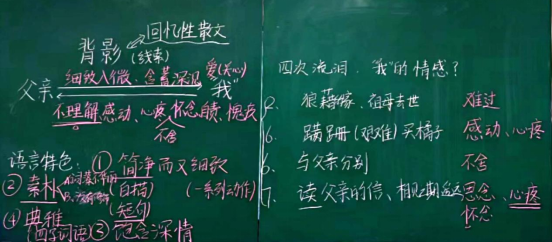 背影 回忆性散文
(线索)
父亲 细致入微、含蓄深沉 爱(关心) "我"
不理解 感动、心疼 怀念 自责、愧疚
不舍
语言特色: ① 简净而又细致
② 素朴 (白描) (一系列动作)
(短句)
④ 典雅
③ 饱含深情
四次流泪,"我"的情感?
2. 狼藉 祖母去世 难过
6. 蹒跚(艰难)买橘子 感动、心疼
6. 与父亲分别 不舍
7. 读父亲的信、 思念、心疼
怀念